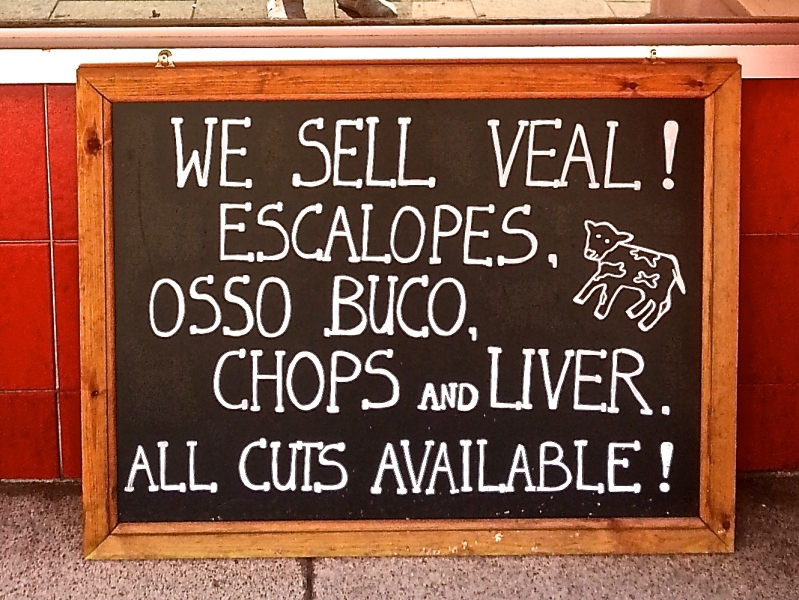 WE SELL VEAL!
ESCALOPES,
OSSO BUCO,
CHOPS AND LIVER.
ALL CUTS AVAILABLE!